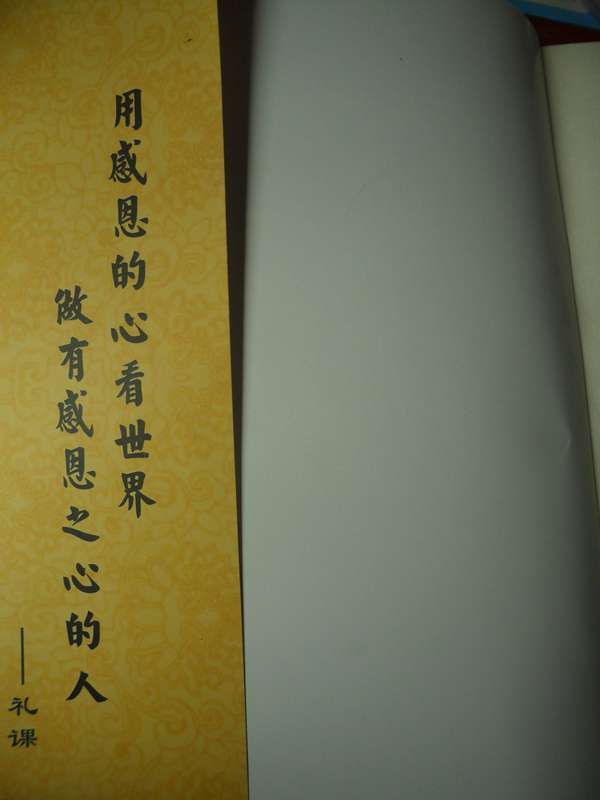 用感恩的心看世界
做有感恩之心的人
——礼课